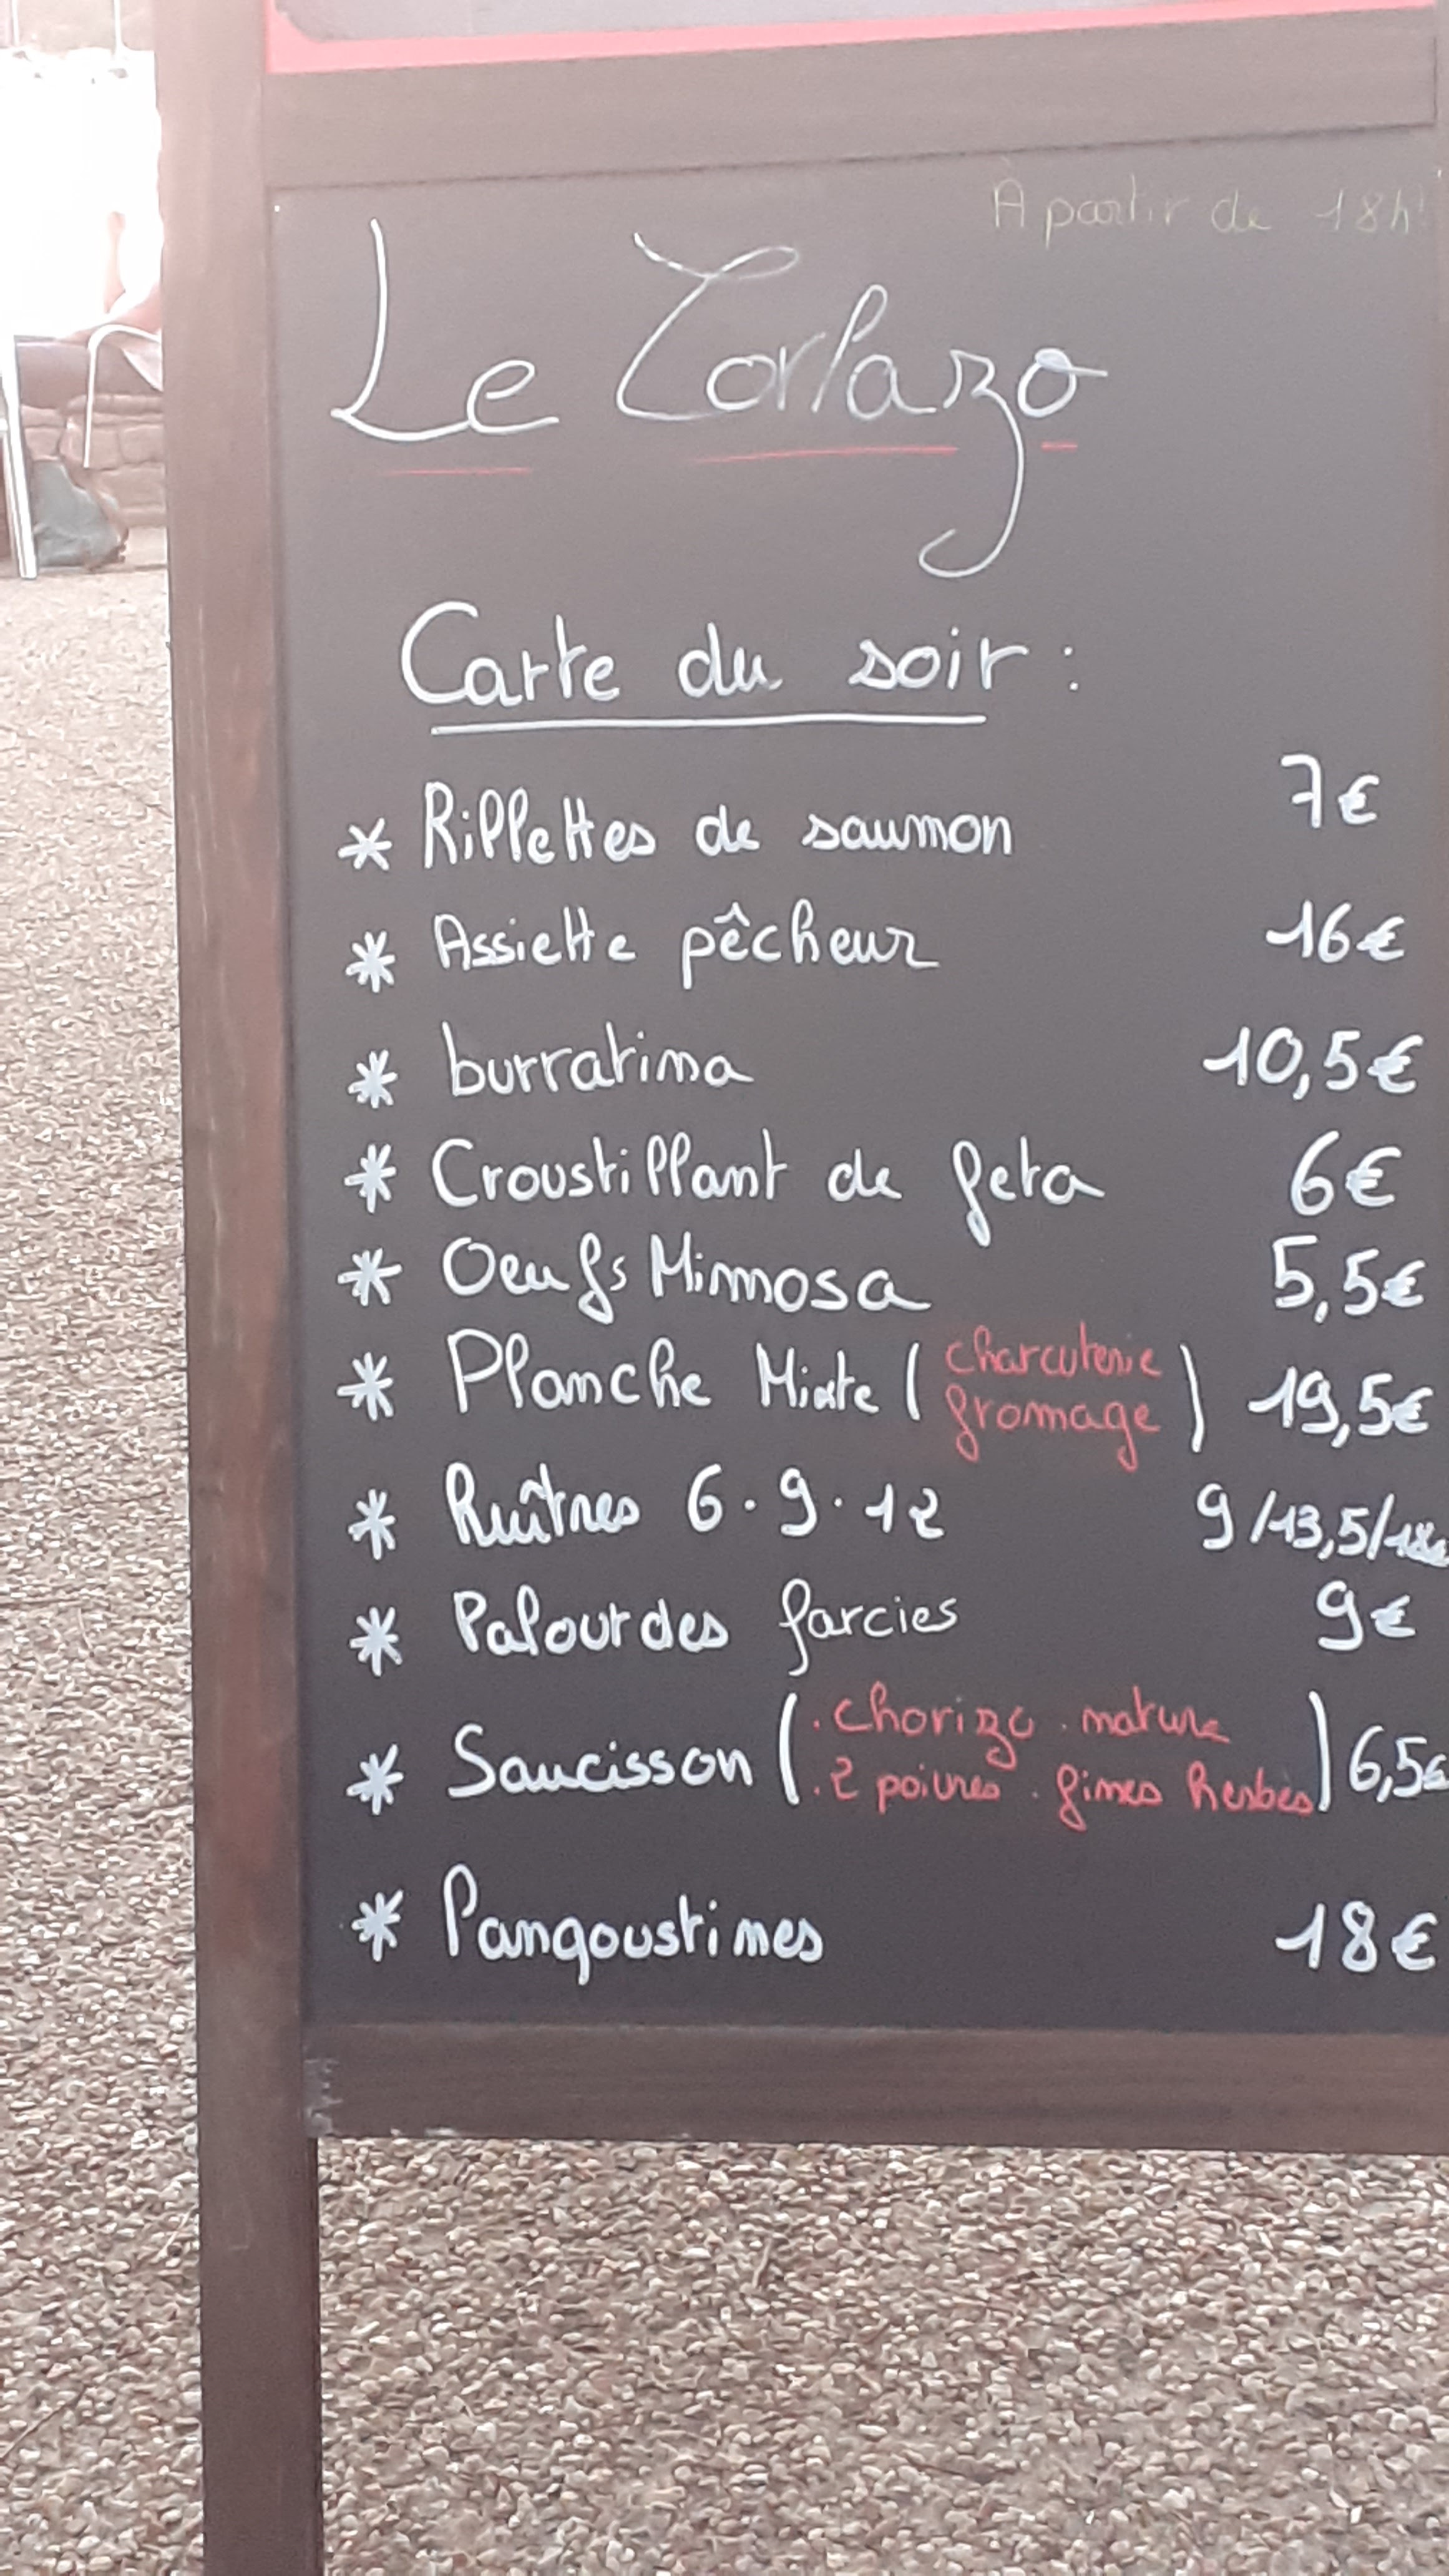 À partir de 18h!
Le Corlazo
Carte du soir :
* Rillettes de saumon 7€
* Assiette pêcheur 16€
* burratina 10,5€
* Croustillant de feta 6€
* Oeufs Mimosa 5,5€
* Planche Mixte ( charcuterie
fromage ) 19,5€
* Huîtres 6.9.12 9/13,5/18€
* Palourdes farcies 9€
* Saucisson ( . chorizo . nature
. 2 poivres . fines herbes ) 6,5€
* Langoustines 18€